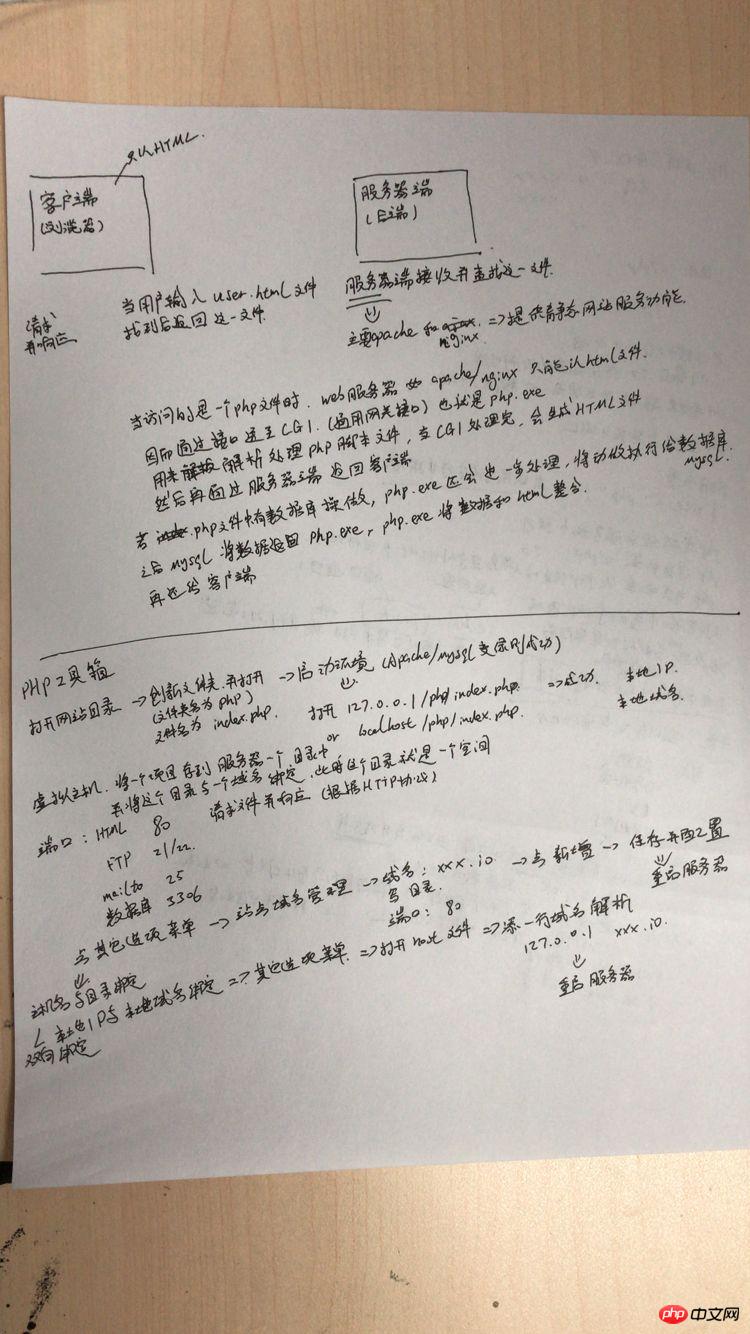 只认HTML.
客户端
(浏览器)
服务器端
(后端)
请求
并响应
当用户输入 user.html文件
找到后返回这一文件.
服务器端接收并查找这一文件.
主要apache 和 nginx => 提供静态网站服务功能.
当访问的是一个php文件时, web服务器如 apache/nginx 只能认html文件.
因而通过接口送至 CGI. (通用网关接口) 也就是 php.exe
用来 解析处理 php 脚本文件, 当CGI处理完, 会生成HTML文件
然后再通过服务器端 返回客户端
若 .php文件中有数据库操做, php.exe 还会进一步处理, 将动做执行给数据库
mysql.
之后 mysql 将数据返回 php.exe, php.exe 将数据和 html 整合.
再返给客户端
PHP工具箱
打开网站目录 → 创新文件夹.并打开 → 启动环境 (Apache/mysql 变绿则成功)
(文件夹名为 php)
文件名为 index.php.
打开 127.0.0.1/php/index.php. => 成功. 本地IP.
or localhost/php/index.php. 本地域名
虚拟主机. 将一个项目存到服务器一个目录中
并将这个目录与一个域名绑定. 此时这个目录就是一个空间
端口: HTML 80 请求文件并响应 (根据HTTP协议)
FTP 21/22.
mailto 25
数据库 3306
点其它选项菜单 → 站点域名管理 → 域名: xxx.io → 点新增 → 保存并配置
写目录.
端口: 80
重启服务器
主机名与目录绑定
本地IP与本地域名绑定 => 其它选项菜单. => 打开 host 文件 => 添一行域名解析
127.0.0.1 xxx.io.
重启服务器
双向绑定
php 中文网